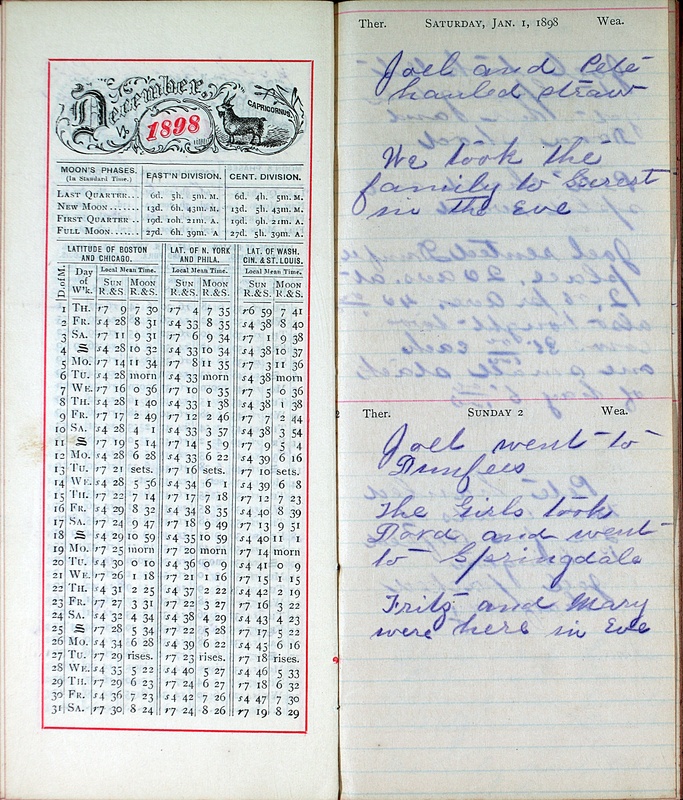 December,
1898
CAPRICORNUS.
MOON'S PHASES.
(In Standard Time.)
EAST'N DIVISION. CENT. DIVISION.
LAST QUARTER... 6d. 5h. 5m. M. 6d. 4h. 5m. M.
NEW MOON..... 13d. 6h. 43m. M. 13d. 5h. 43m. M.
FIRST QUARTER .. 19d. 10h. 21m. A. 19d. 9h. 21m. A.
FULL MOON..... 27d. 6h. 39m. A. 27d. 5h. 39m. A.
LATITUDE OF BOSTON AND CHICAGO. LAT. OF N. YORK AND PHILA. LAT. OF WASH. CIN. & ST. LOUIS.
D. of M. Day of W'k. Local Mean Time. Local Mean Time. Local Mean Time.
SUN R.&S. MOON R.&S. SUN R.&S. MOON R.&S. SUN R.&S. MOON R.&S.
1 TH. r7 9 7 30 r7 4 7 35 r6 59 7 41
2 FR. s4 28 8 31 s4 33 8 35 s4 38 8 40
3 SA. r7 11 9 31 r7 6 9 34 r7 1 9 38
4 S s4 28 10 32 s4 33 10 34 s4 38 10 37
5 MO. r7 14 11 34 r7 8 11 35 r7 3 11 36
6 TU. s4 28 morn s4 33 morn s4 38 morn
7 WE. r7 16 0 36 r7 10 0 35 r7 5 0 36
8 TH. s4 28 1 40 s4 33 1 38 s4 38 1 38
9 FR. r7 17 2 49 r7 12 2 46 r7 7 2 44
10 SA. s4 28 4 1 s4 33 3 57 s4 38 3 54
11 S r7 19 5 14 r7 14 5 9 r7 9 5 4
12 MO. s4 28 6 28 s4 33 6 22 s4 39 6 16
13 TU. r7 21 sets. r7 16 sets. r7 10 sets.
14 WE. s4 28 5 36 s4 34 6 1 s4 39 6 8
15 TH. r7 22 7 14 r7 17 7 18 r7 12 7 23
16 FR. s4 29 8 32 s4 34 8 35 s4 40 8 39
17 SA. r7 24 9 47 r7 18 9 49 r7 13 9 51
18 S s4 29 10 59 s4 35 10 59 s4 40 11 1
19 MO. r7 25 morn r7 20 morn r7 14 morn
20 TU. s4 30 0 10 s4 36 0 9 s4 41 0 9
21 WE. r7 26 1 18 r7 21 1 16 r7 15 1 15
22 TH. s4 31 2 25 s4 37 2 22 s4 42 2 19
23 FR. r7 27 3 31 r7 22 3 27 r7 16 3 22
24 SA. s4 32 4 34 s4 38 4 29 s4 43 4 23
25 S r7 28 5 34 r7 22 5 28 r7 17 5 22
26 MO. s4 34 6 28 s4 39 6 22 s4 45 6 16
27 TU. r7 29 rises. r7 23 rises. r7 18 rises.
28 WE. s4 35 5 22 s4 40 5 27 s4 46 5 33
29 TH. r7 29 6 23 r7 24 6 27 r7 18 6 32
30 FR. s4 36 7 23 s4 42 7 26 s4 47 7 30
31 SA. r7 30 8 24 r7 24 8 26 r7 19 8 29
Ther. SATURDAY, JAN. 1, 1898 Wea.
Joel and Pete
hauled straw
We took the
family to Cerest
in the Eve
Ther. SUNDAY 2 Wea.
Joel went to
Dunfees
The Girls took
Dora and went
to Springdale
Fritz and Mary
were here in Eve